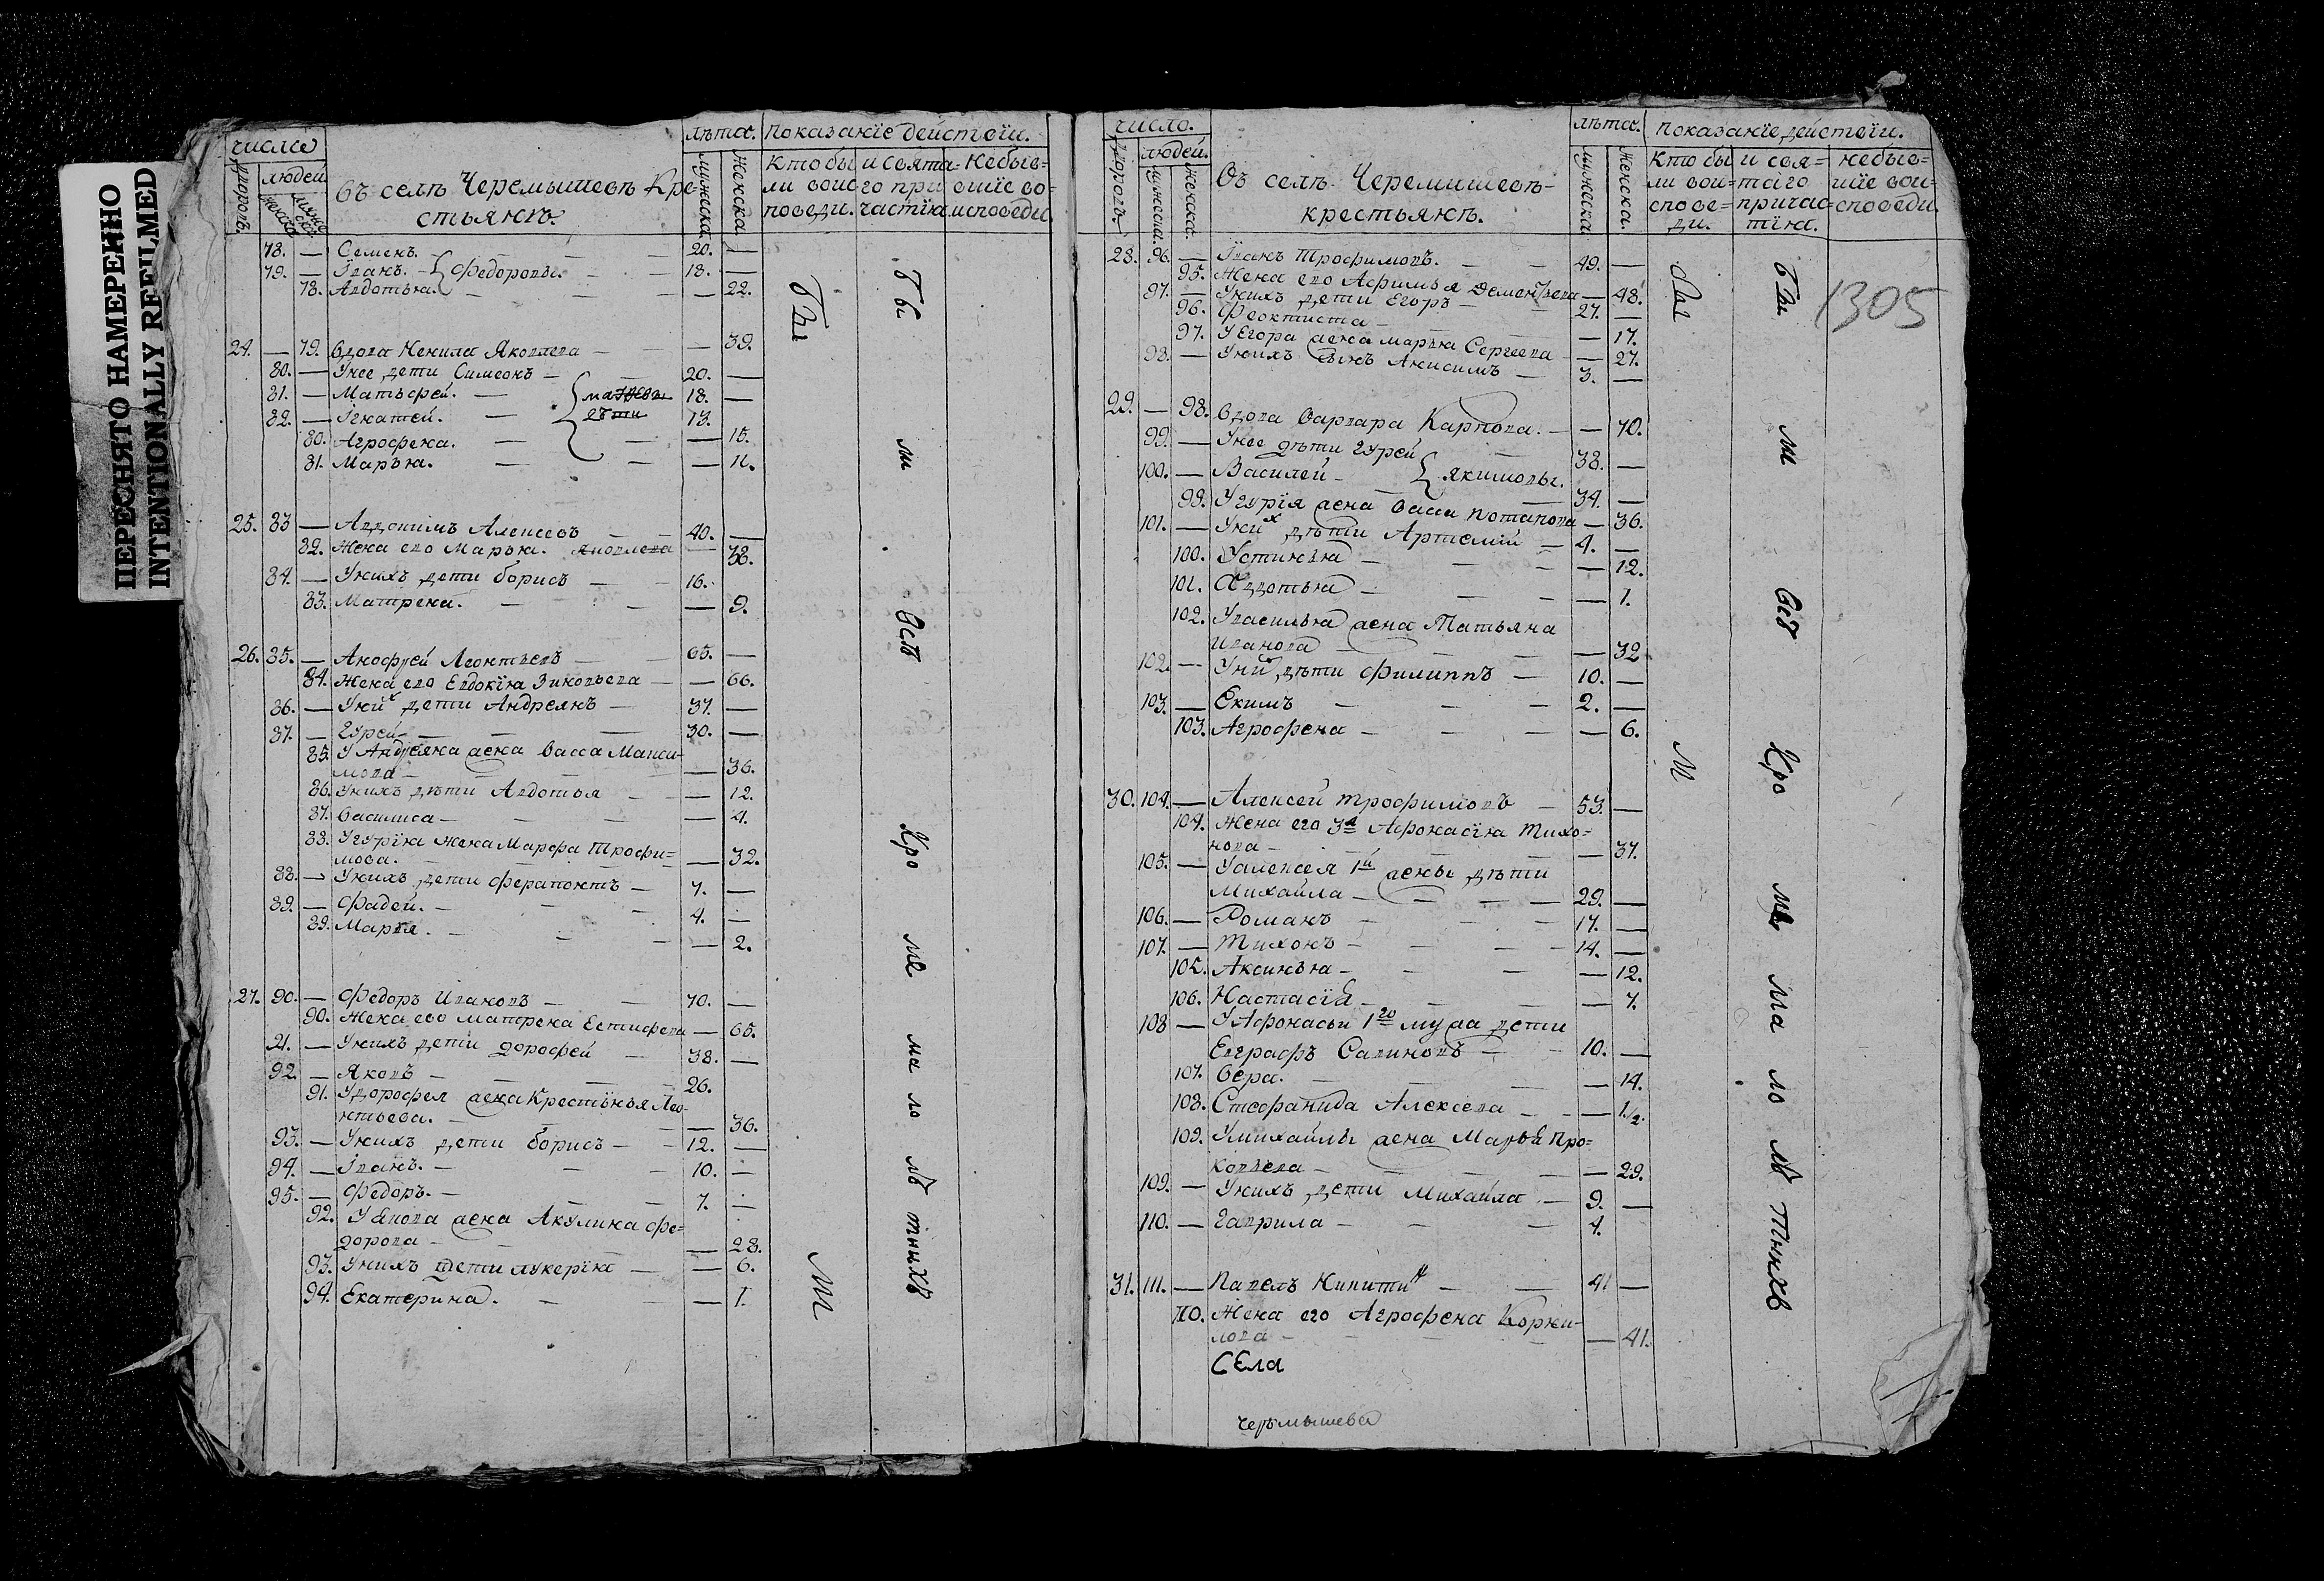 ПЕРЕСНЯТО НАМЕРЕННО
INTENTIONALLY REFILMED
число
людей
въ селѣ Черемышевѣ Кре-
стьянъ.
лѣта. показанїе действїи.
мужеска женска
кто бы и свята- не быв-
ли во ис го при- шїе во
поведи. частїя. исповеди.
78. — Семенъ. — 20. —
79. — Іванъ. — Федоровы. — 18. —
78. Авдотья. — — 22.
24. — 79. Вдова Ненила Яковлева — — 39.
80. — У нее дети Симеонъ — 20. —
81. — Матьфей. — 18. —
82. — Ігнатей. — 13.
80. Агрофена. — — 15.
81. Марья. — — 11.
25. 83 — Авдокимъ Алексеевъ — 40. —
82. Жена его Марья. Яковлева — 38.
84. — У нихъ дети Борисъ — 16.
83. Матрена. — — 9.
26. 85. — Анофрей Леонтьевъ — 65. —
84. Жена его Евдокія Зиновьева — — 66.
86. — У них дети Андреянъ — 37. —
87. — Гурей — 30. —
85. У Андреяна жена Васса Макси-
мова — — 36.
86. У нихъ дѣти Авдотья — — 12.
87. Василиса — — 4.
88. У Гурїя жена Марфа Трофи=
мова. — — 32.
88. — У нихъ дети Ферапонтъ — 7. —
89. — Фадей. — 4. —
89. Марья. — — 2.
27. 90. — Федоръ Ивановъ — 70. —
90. Жена ево Матрена Естифева — 65.
91. — У нихъ дети Дорофей — 38. —
92. — Яковъ — 26.
91. У Дорофея жена Крестинья Лео-
нтьева. — — 36.
93. — У нихъ дети Борисъ — 12. —
94. — Іванъ. — 10. —
95. — Федоръ. — 7. —
92. У Якова жена Акулина Фе=
дорова — — 28.
93. У нихъ дети Лукерья — — 6.
94. Екатерина. — — 1.
Бы
ли
Бы
ли
Всѣ
Кро
ме
ма
ло
лѣ
тныхъ
число.
людей.
Въ селѣ Черемышевѣ
крестьянъ.
лѣта. показанїе действїи.
мужеска женска.
кто бы и свя= не быв=
ли во и= таго шїе во и=
спове= причас= споведи.
ди. тїя.
28. 96. — Іванъ Трофимовъ. — 49. —
95. Жена его Афимья Дементьева — 48.
97. — У нихъ дети Егоръ — 27. —
96. Феоктиста — — 17.
97. У Егора жена Марья Сергеева — 27.
98. — У нихъ сынъ Анисимъ — 3. —
29. — 98. Вдова Варвара Карпова. — — 70.
99. — У нее дѣти Гурей — 38. —
100. — Василей — Якимовы. 34. —
99. У Гурїя жена Васса Потапова — 36.
101. — У них дѣти Артемій — 4. —
100. Устинья — — 12.
101. Авдотья — — 1.
102. У Василья жена Татьяна
Иванова — — 32
102. — У них дѣти Филиппъ — 10. —
103. — Екимъ — 2. —
103. Агрофена — — 6.
30. 104. — Алексей Трофимовъ — 53. —
104. Жена его 3я Афонасїя Тихо=
нова — — 37.
105. — У Алексея 1й жены дѣти
Михайла — 29. —
106. — Романъ — 17. —
107. — Тихонъ — 14. —
105. Аксинья — — 12.
106. Настасїя — — 7.
108 — У Афонасьи 1го мужа дети
Евграфъ Савиновъ — 10. —
107. Вера. — — 14.
108. Стефанида Алексеева — — 1/2.
109. У Михайлы жена Марья Про=
копьева — — 29.
109. — У нихъ дети Михайла — 9. —
110. — Гаврила — 4.
31. 111. — Павелъ Никитин — 41 —
110. Жена его Агрофена Корни-
лова — — 41.
Села
Черемышева
Бы
ли
Бы
ли
Всѣ
Кро
мѣ
ма
ло
лѣ
тнихъ
1305